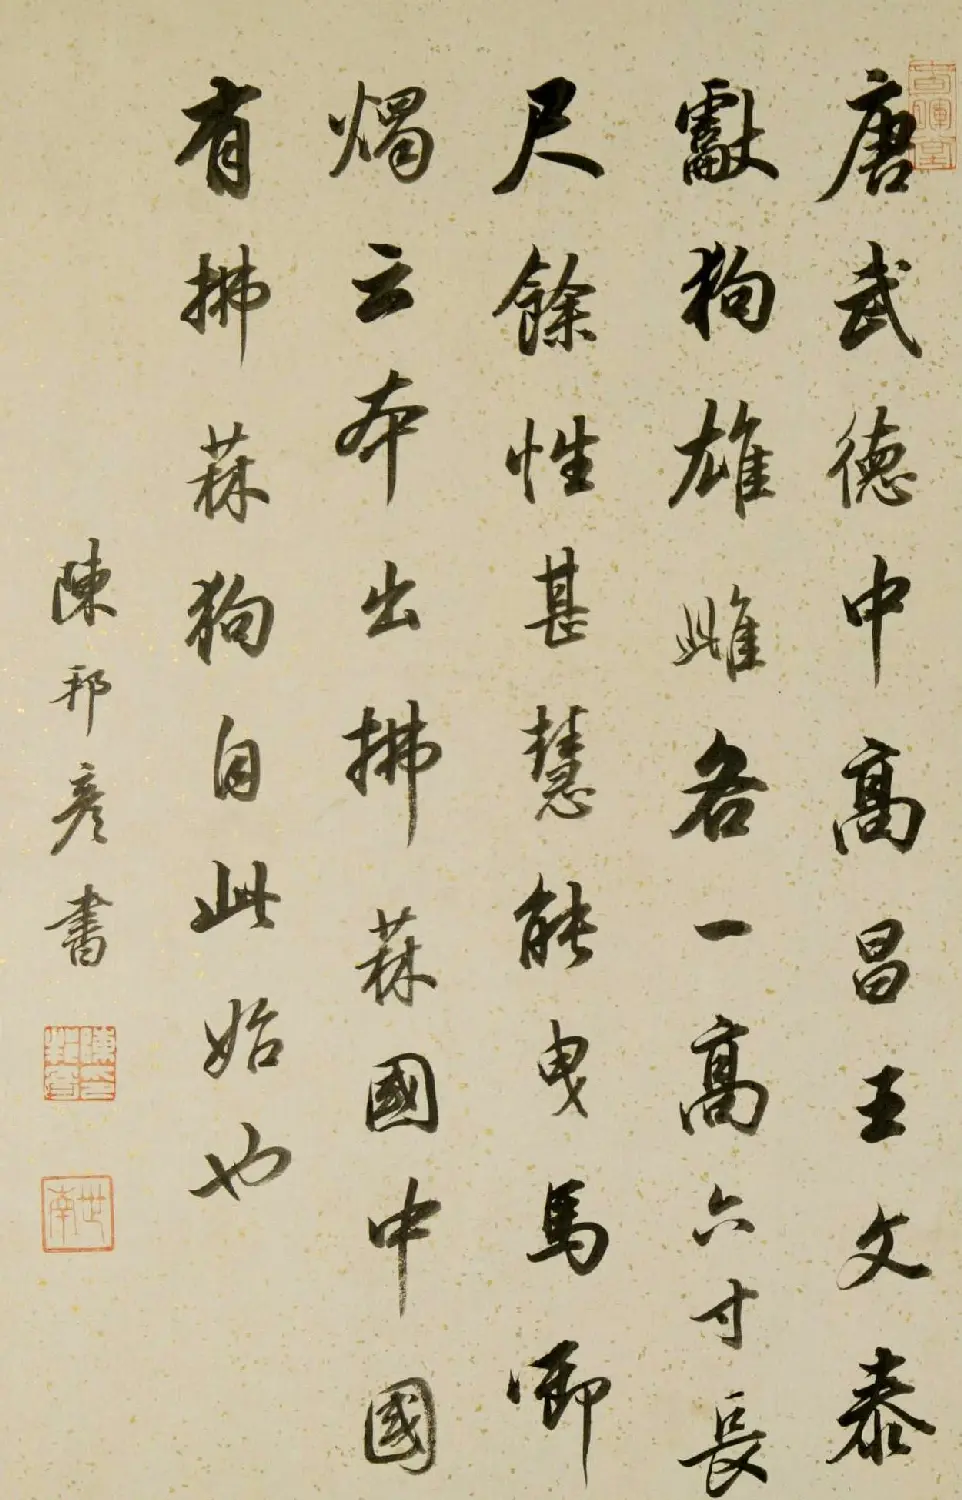 唐武德中高昌王文泰
獻狗雄雌各一高六寸長
尺餘性甚慧能曳馬啣
燭云本出拂菻國中國
有拂菻狗自此始也
陳邦彥書
世南